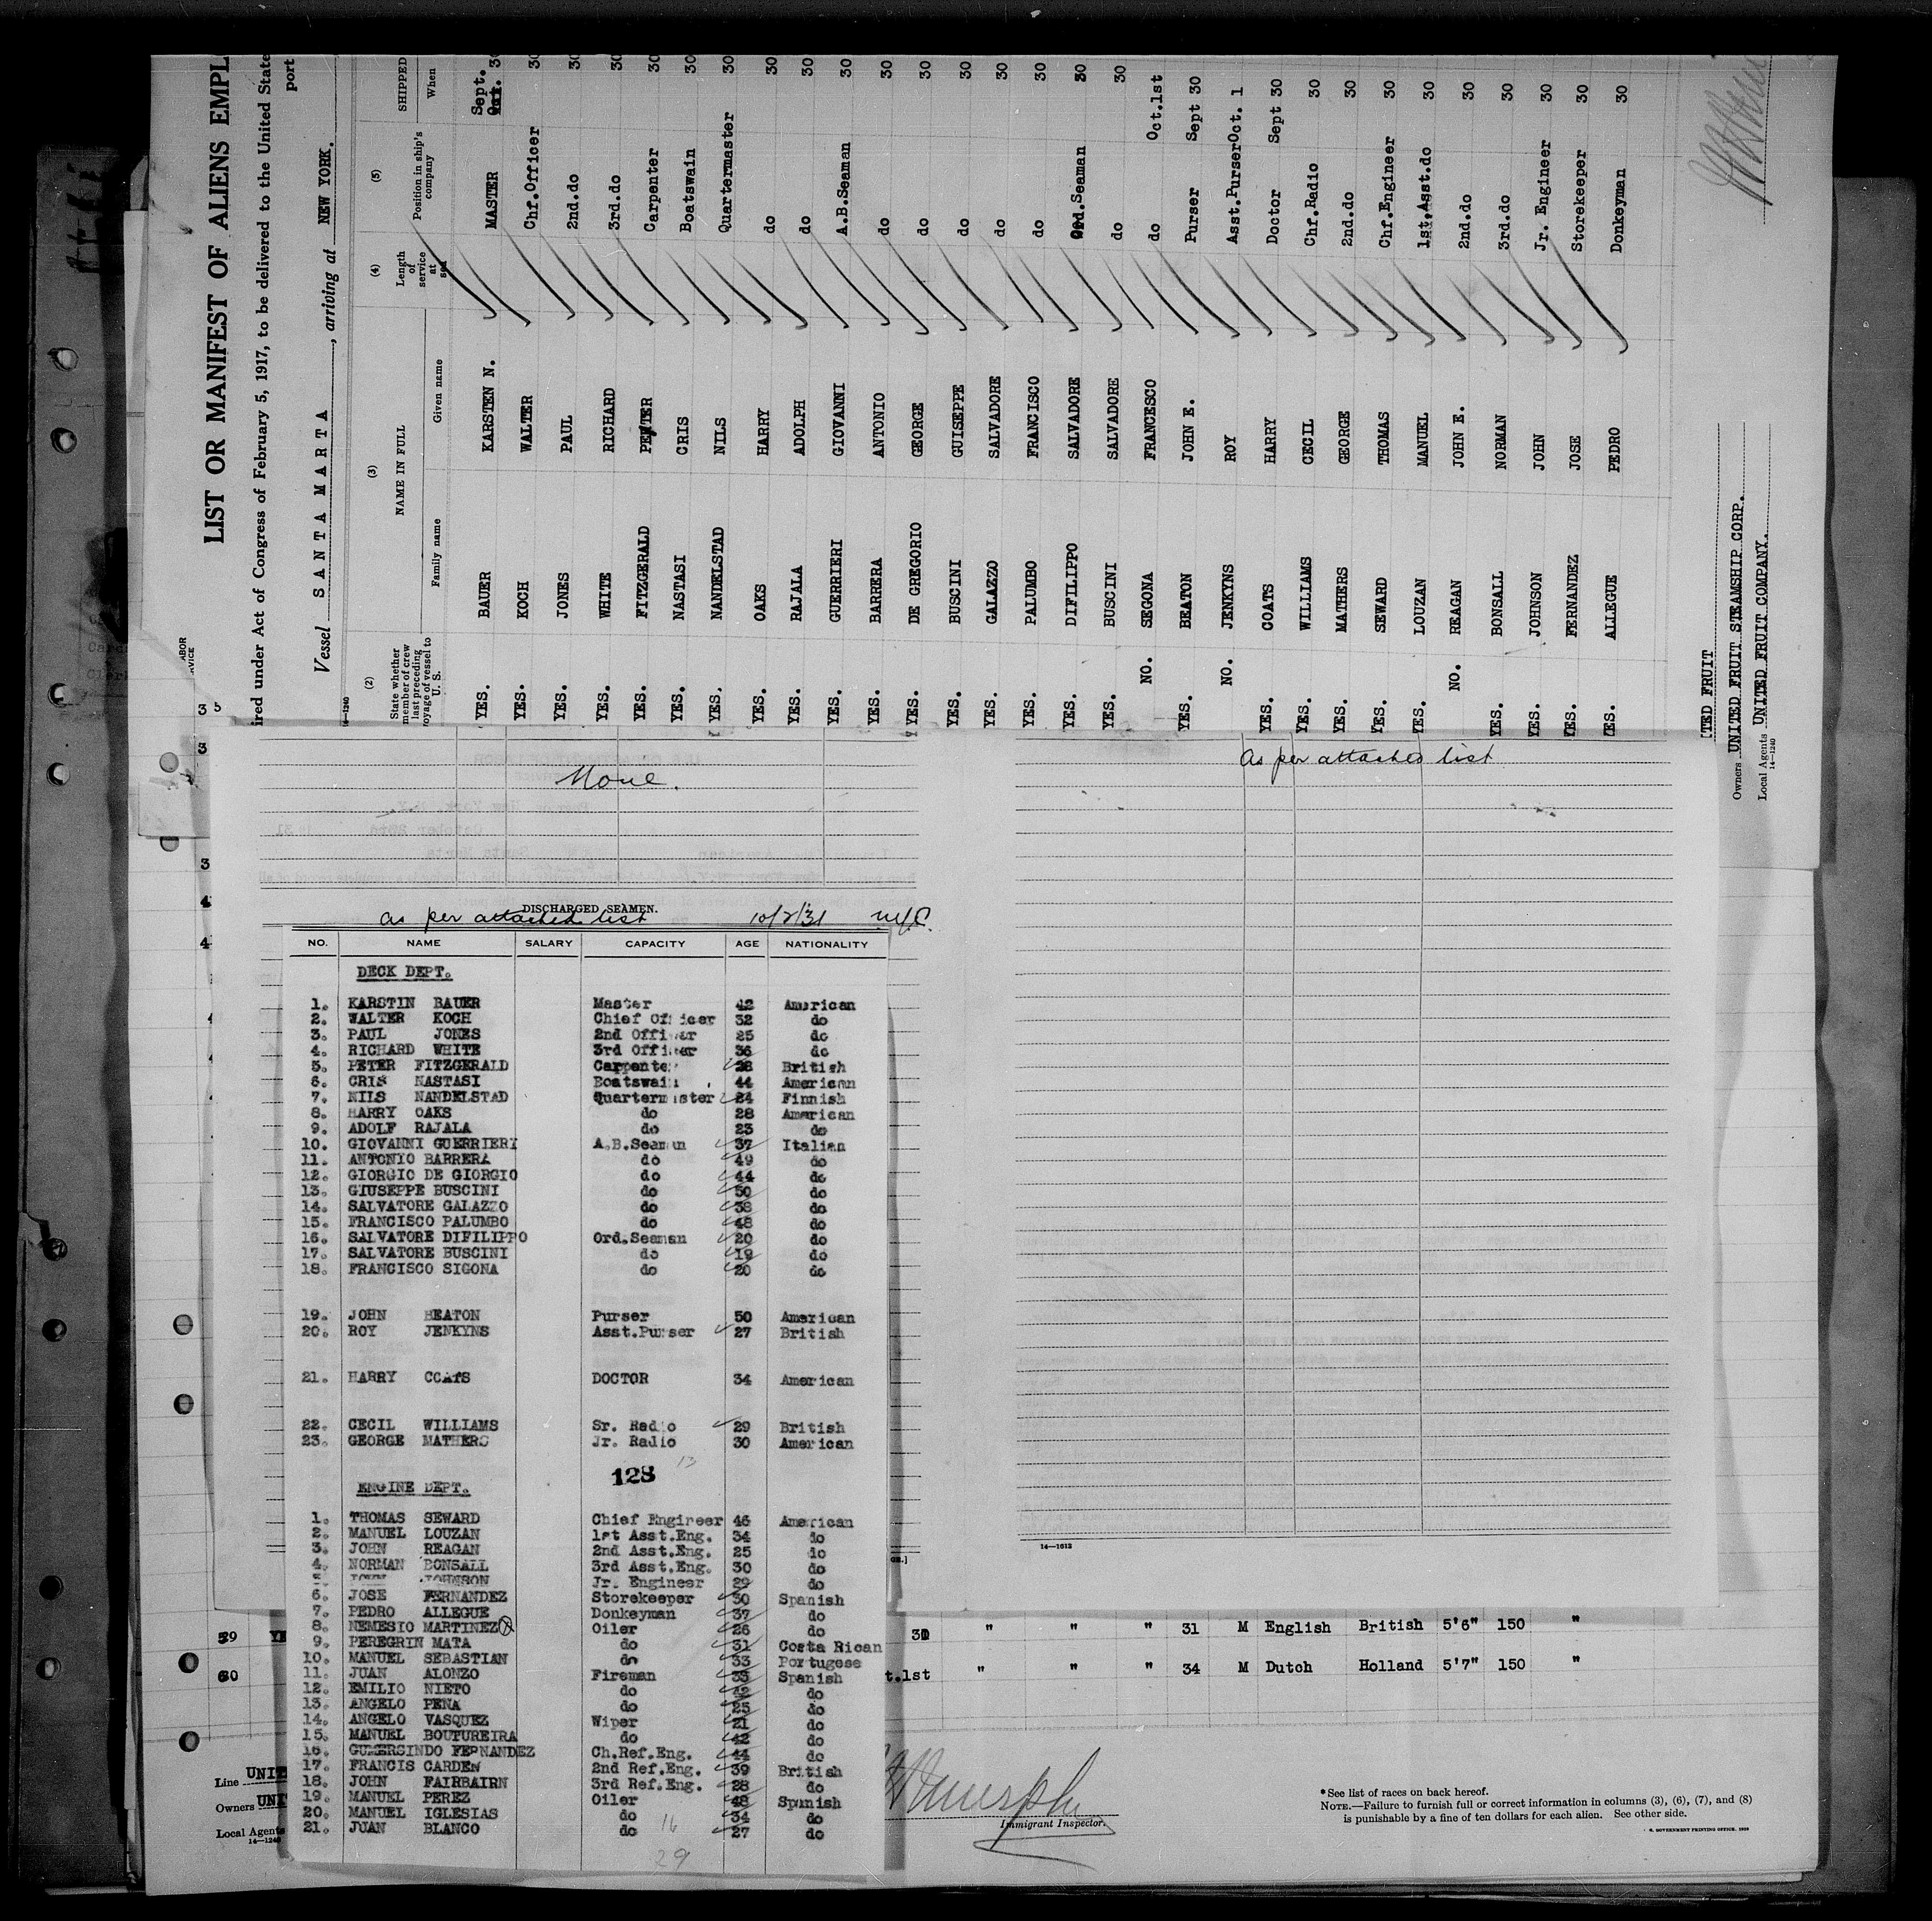 LIST OR MANIFEST OF ALIENS EMPL
ired under Act of Congress of February 5, 1917, to be delivered to the United State
port
Vessel SANTA MARTA, arriving at NEW YORK.
14—1240
(2) (3) (4) (5)
State whether member of crew last preceding voyage of vessel to U. S. NAME IN FULL Family name Given name Length of service at sea Position in ship's company SHIPPED When
YES. BAUER KARSTEN N. MASTER Sept. Oct. 30
YES. KOCH WALTER Chf.Officer 30
YES. JONES PAUL 2nd.do 30
YES. WHITE RICHARD 3rd.do 30
YES. FITZGERALD PETER Carpenter 30
YES. NASTASI CRIS Boatswain 30
YES. NANDELSTAD NILS Quartermaster 30
YES. OAKS HARRY do 30
YES. RAJALA ADOLPH do 30
YES. GUERRIERI GIOVANNI A.B.Seaman 30
YES. BARRERA ANTONIO do 30
YES. DE GREGORIO GEORGE do 30
YES. BUSCINI GUISEPPE do 30
YES. GALAZZO SALVADORE do 30
YES. PALUMBO FRANCISCO do 30
YES. DIFILIPPO SALVADORE Ord.Seaman 30
YES. BUSCINI SALVADORE do 30
NO. SEGONA FRANCESCO do Oct.1st
YES. BEATON JOHN E. Purser Sept 30
NO. JENKYNS ROY Asst.Purser Oct. 1
YES. COATS HARRY Doctor Sept 30
YES. WILLIAMS CECIL Chf.Radio 30
YES. MATHERS GEORGE 2nd.do 30
YES. SEWARD THOMAS Chf.Engineer 30
YES. LOUZAN MANUEL 1st.Asst.do 30
NO. REAGAN JOHN E. 2nd.do 30
YES. BONSALL NORMAN 3rd.do 30
YES. JOHNSON JOHN Jr. Engineer 30
YES. FERNANDEZ JOSE Storekeeper 30
YES. ALLEGUE PEDRO Donkeyman 30
ITED FRUIT
Owners UNITED FRUIT STEAMSHIP CORP.
Local Agents UNITED FRUIT COMPANY.
14—1240
None.
As per attached list
DISCHARGED SEAMEN.
as per attached list 10/2/31
NO. NAME SALARY CAPACITY AGE NATIONALITY
DECK DEPT.
1. KARSTIN BAUER Master 42 American
2. WALTER KOCH Chief Officer 32 do
3. PAUL JONES 2nd Officer 25 do
4. RICHARD WHITE 3rd Officer 36 do
5. PETER FITZGERALD Carpenter 28 British
6. CRIS NASTASI Boatswain 44 American
7. NILS NANDELSTAD Quartermaster 24 Finnish
8. HARRY OAKS do 28 American
9. ADOLF RAJALA do 23 do
10. GIOVANNI GUERRIERI A.B.Seaman 37 Italian
11. ANTONIO BARRERA do 49 do
12. GIORGIO DE GIORGIO do 44 do
13. GIUSEPPE BUSCINI do 50 do
14. SALVATORE GALAZZO do 38 do
15. FRANCISCO PALUMBO do 48 do
16. SALVATORE DIFILIPPO Ord.Seaman 20 do
17. SALVATORE BUSCINI do 19 do
18. FRANCISCO SIGONA do 20 do
19. JOHN BEATON Purser 50 American
20. ROY JENKYNS Asst.Purser 27 British
21. HARRY COATS DOCTOR 34 American
22. CECIL WILLIAMS Sr. Radio 29 British
23. GEORGE MATHERS Jr. Radio 30 American
13
128
ENGINE DEPT.
1. THOMAS SEWARD Chief Engineer 46 American
2. MANUEL LOUZAN 1st Asst.Eng. 34 do
3. JOHN REAGAN 2nd Asst.Eng. 25 do
4. NORMAN BONSALL 3rd Asst.Eng. 30 do
5. JOHN JOHNSON Jr. Engineer 29 do
6. JOSE FERNANDEZ Storekeeper 30 Spanish
7. PEDRO ALLEGUE Donkeyman 37 do
8. NEMESIO MARTINEZ Oiler 26 do
9. PEREGRIN MATA do 31 Costa Rican
10. MANUEL SEBASTIAN do 33 Portugese
11. JUAN ALONZO Fireman Spanish
12. EMILIO NIETO do do
13. ANGELO PENA do 25 do
14. ANGELO VASQUEZ Wiper 21 do
15. MANUEL BOUTUREIRA do 42 do
16. GUMERSINDO FERNANDEZ Ch.Ref.Eng. 44 do
17. FRANCIS CARDEN 2nd Ref.Eng. 39 British
18. JOHN FAIRBAIRN 3rd Ref.Eng. 28 do
19. MANUEL PEREZ Oiler 48 Spanish
20. MANUEL IGLESIAS do 34 do
21. JUAN BLANCO do 27 do
16
29
14—1612
59 YE 30 " " " 31 M English British 5'6" 150 "
60 t.1st " " " 34 M Dutch Holland 5'7" 150 "
Line UNIT
Owners UNI
Local Agents
14—1240
Immigrant Inspector.
*See list of races on back hereof.
NOTE.—Failure to furnish full or correct information in columns (3), (6), (7), and (8)
is punishable by a fine of ten dollars for each alien. See other side.